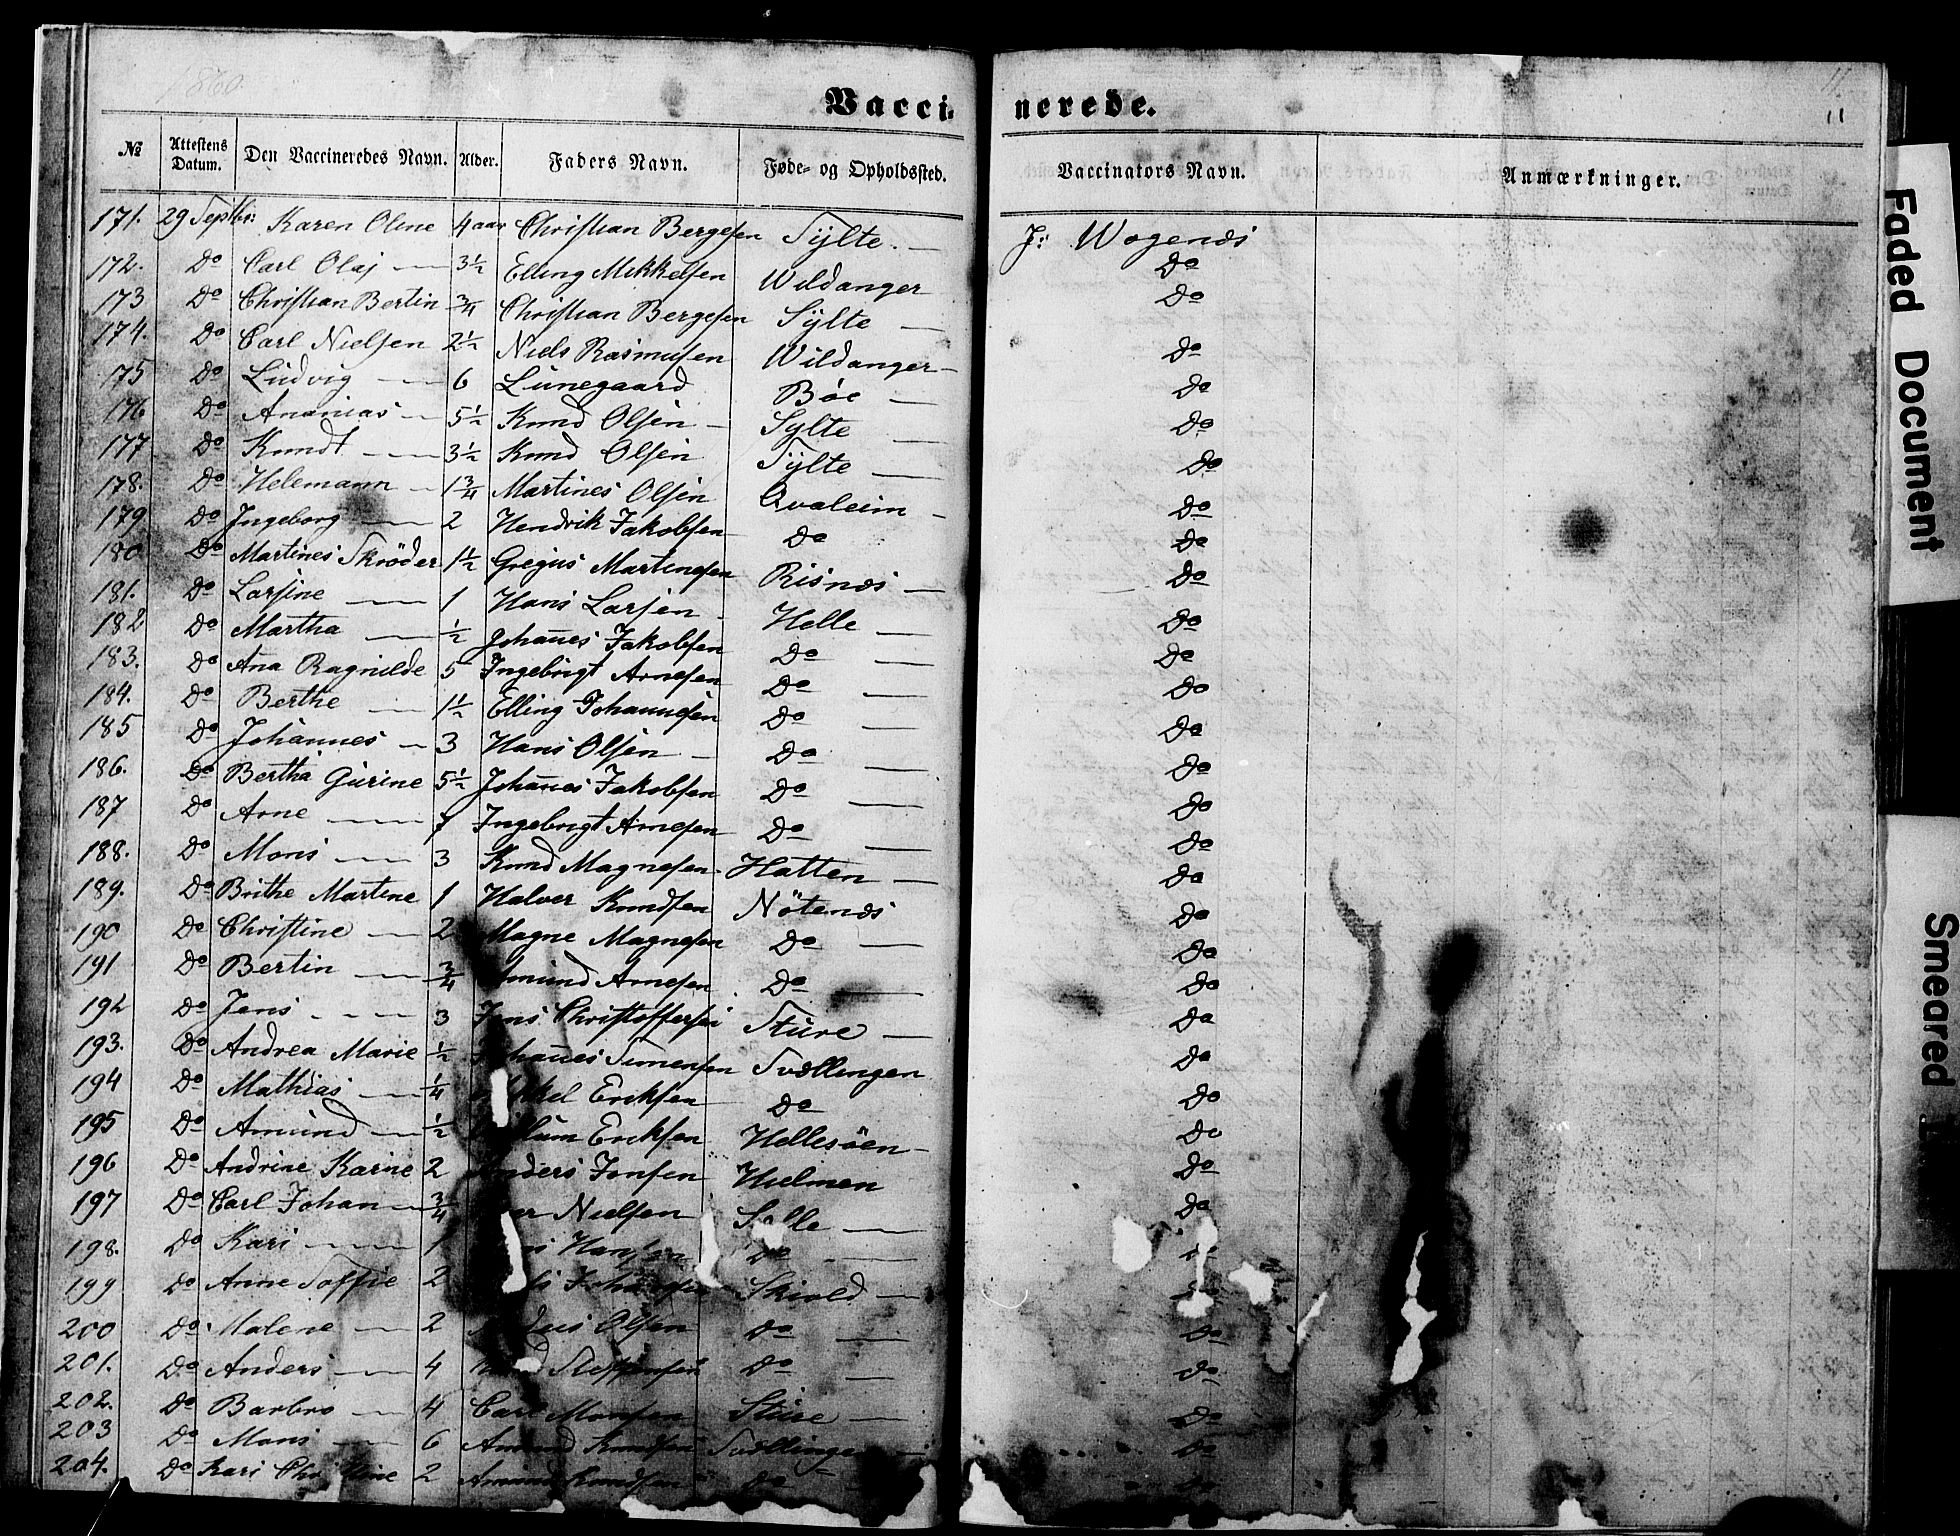 1860.
Vaccinerede.
11.
11
№ Attestens Datum. Den Vaccineredes Navn. Alder. Faders Navn. Føde- og Opholdssted. Vaccinators Navn. Anmærkninger.
171. 29 Septbr: Karen Oline 4 aar Christian Bergesen Sylte. — J: Wogenæs
172. Do Carl Olaj — 3½ Elling Mikkelsen Wildanger Do
173 Do Christian Bertin ¾ Christian Bergesen Sylte — Do
174. Do Carl Nielsen 2½ Niels Rasmusen Wildanger — Do
175 Do Ludvig — 6 Lunegaard Böe — Do
176 Do Ananias — 5½ Knud Olsen — Sylte — Do
177 Do Knudt — 3½ Knud Olsen Sylte — Do
178. Do Helemann — 1¾ Martines Olsen Qvaleim — Do
179 Do Ingeborg — 2 Hendrik Jakobsen Do Do
180 Do Martines Skröder 1½ Gregus Martinesen Risnæs — Do
181. Do Larsine — 1 Hans Larsen Helle — Do
182 Do Martha — ½ Johanes Jakobsen Do — Do
183. Do Ana Ragnilde 5 Ingebrigt Arnesen Do — Do
184. Do Berthe — 1½ Elling Johannesen Do — Do
185 Do Johannes — 3 Hans Olsen — Do — Do
186. Do Bertha Gurine 5½ Johanes Jakobsen Do — Do
187 Do Arne — 7 Ingebrigt Arnesen Do — Do
188. Do Mons — 3 Knud Magnesen Hatten — Do
189. Do Brithe Martine 1 Halver Knudsen Nötenæs Do
190 Do Christine — 2 Magne Magnesen Do — Do
191 Do Bertin — ¾ Amund Arnesen Do — Do
192 Do Jens — 3 Jens Christoffersen Sture — Do
193. Do Andrea Marie ½ Johanes Simensen Svællingen Do
194 Do Mathias — ¼ Mikkel Eriksen Do Do
195 Do Amund — ½ Eriksen Hellesöen — Do
196 Do Andrine Karine 2 Anders Jonsen Hielmen Do
197 Do Carl Johan — ¾ Nielsen — Do
198. Do Kari — 1 Hansen Do — Do
199 Do Anne Soffie 2 Skiold — Do
200 Do Malene — 2 Olsen Do — Do
201. Do Anders — 4 Steffensen Do — Do
202. Do Barbro — 4 Carl Monsen Sture — Do
203 Do Mons — 6 Amund Knudsen Svællingen — Do
204. Do Kari Christine 2 Amund Knudsen Do Do
Faded Document
Smeared